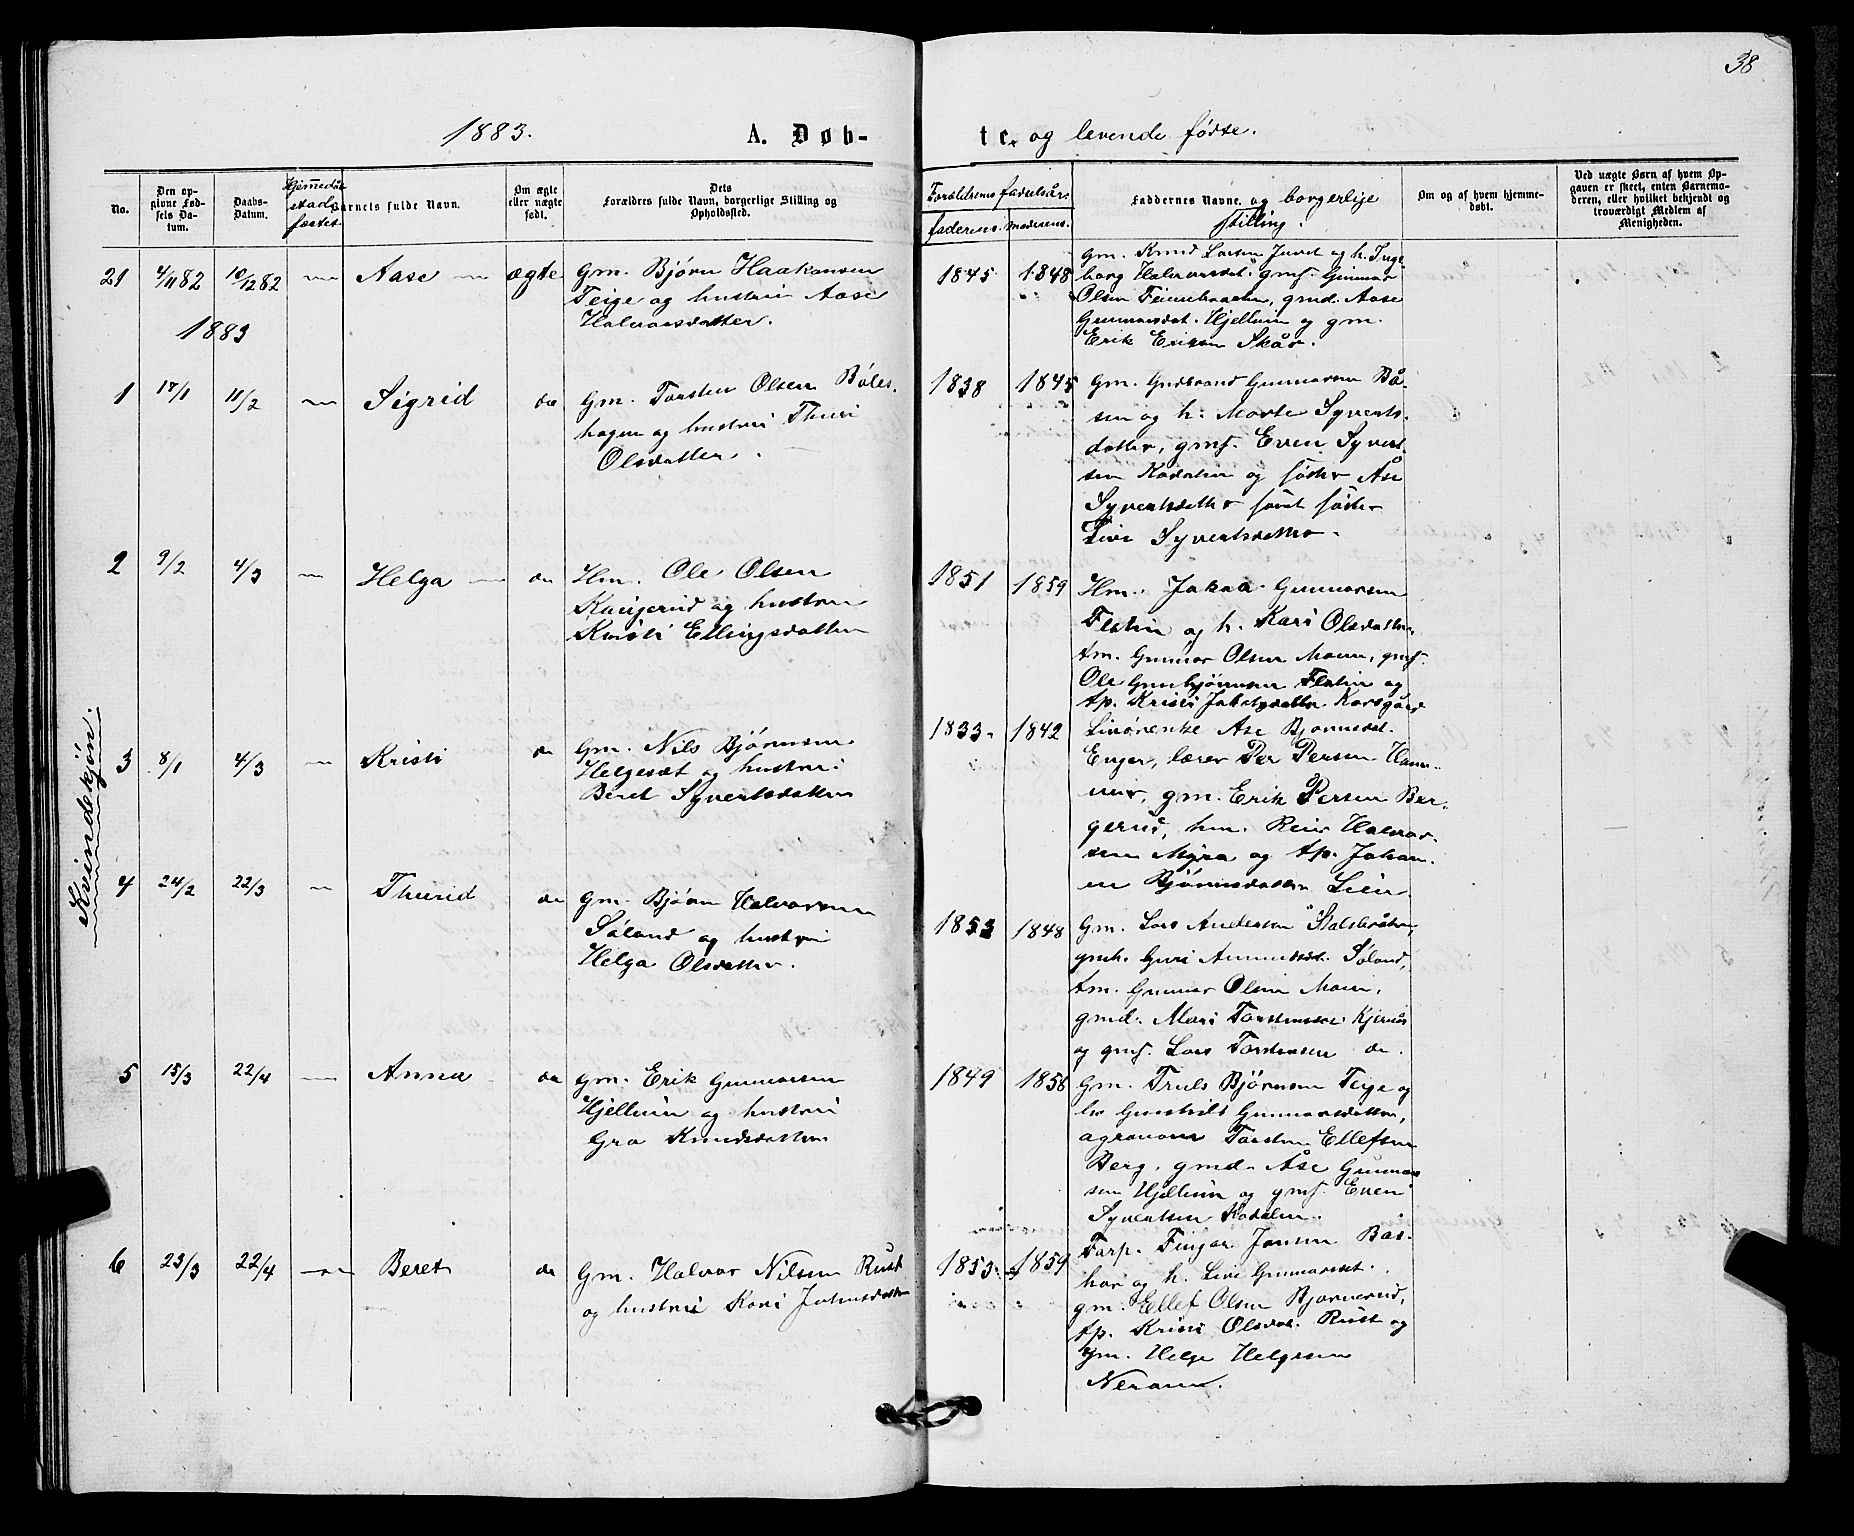 38
1883. A. Døb-
te. og levende fødte.
No.
Den op-
givne Fød-
sels Da-
tum.
Daabs-
Datum.
Hjemmedåb
stads-
fæstet
Barnets fulde Navn.
Om ægte
eller uægte
født.
Dets
Forældres fulde Navn, borgerlige Stilling og
Opholdssted.
Forældrenes fødselsår.
faderens. moderens.
Faddernes Navne. og borgerlige
stilling.
Om og af hvem hjemme-
døbt.
Ved uægte Børn af hvem Op-
gaven er skeet, enten Barnemo-
deren, eller hvilket bekjendt og
troværdigt Medlem af
Menigheden.
Kvindekjön.
21 4/11 82 10/12 82 — Aase — ægte
Gm. Bjørn Haakonsen
Teige og hustru Aase
Halvorsdatter.
1845 1848
Gm. Knud Larsen Juvet og h. Inge
borg Halvorsdat. gmf. Gunnar
Olsen gmd. Aase
Gunnarsdat. Hjelluin og gm.
Erik Eriksen Skår.
1883
1 17/1 11/2 — Sigrid do
Gm. Torsten Olsen Böles-
hagen og hustru Thuri
Olsdatter.
1838 1845
Gm. Gudbrand Gunnarsen Bå-
sen og h. Marte Syverts-
datter, gmf. Even Syvert-
sen Kodalen og söster Åse
Syvertsdatter samt söster
Livi Syvertsdatter.
2 9/2 4/3 — Helga — do
Hm. Ole Olsen
og hustru
Kristi Ellingsdatter
1851 1859
Hm. Gunnarsen
Flatin og h. Kari Olsdatter,
tm. Gunnar Olsen Moen, gmf.
Ole Gunbjörnsen Flatin og
tp. Kristi Jakobsdatter Korsgård
3 8/1 4/3 — Kristi do
Gm. Nils Bjørnsen
Helgeset og hustru
Beret Syvertsdatter
1833. 1842
Åse Bjørnsdat.
Enger, lærer Per Persen Ham-
mer, gm. Erik Persen Ber-
gerud, hm. Reier Halvor-
sen Myra og tp. Johan-
ne Bjørnsdatter Lien.
4 24/2 22/3 — Thurid do
Gm. Bjørn Halvorsen
Søland og hustru
Helga Olsdatter.
1853 1848
Gm. Lars Andersen Stalsbråten,
gmk. Guri Søland,
tm. Gunnar Olsen Moen,
gmd. Mari Torstensdat. Kjernås
og gmf. Lars Torstensen do.
5 15/3 22/4 — Anna do
Gm. Erik Gunnarsen
Hjelluin og hustru
Gro Knudsdatter
1849 1856
Gm. Truls Bjørnsen Teige og
h. Gunhild Gunnarsdatter,
agronom Torsten Ellefsen
Berg, gmd. Åse Gunnar
sen Hjelluin og gmf. Even
Syvertsen Kodalen.
6 23/3 22/4 — Beret do
Gm. Halvor Nilsen Rust
og hustru Kari Johnsdatter
1853. 1859
Forp. Fingar Jonsen Bås-
har og h. Livi Gunnarsdat.
gm. Ellef Olsen Bjørnerud,
tp. Kristi Olsdat. Rust og
Gm. Helge Helgesen
Neramen.